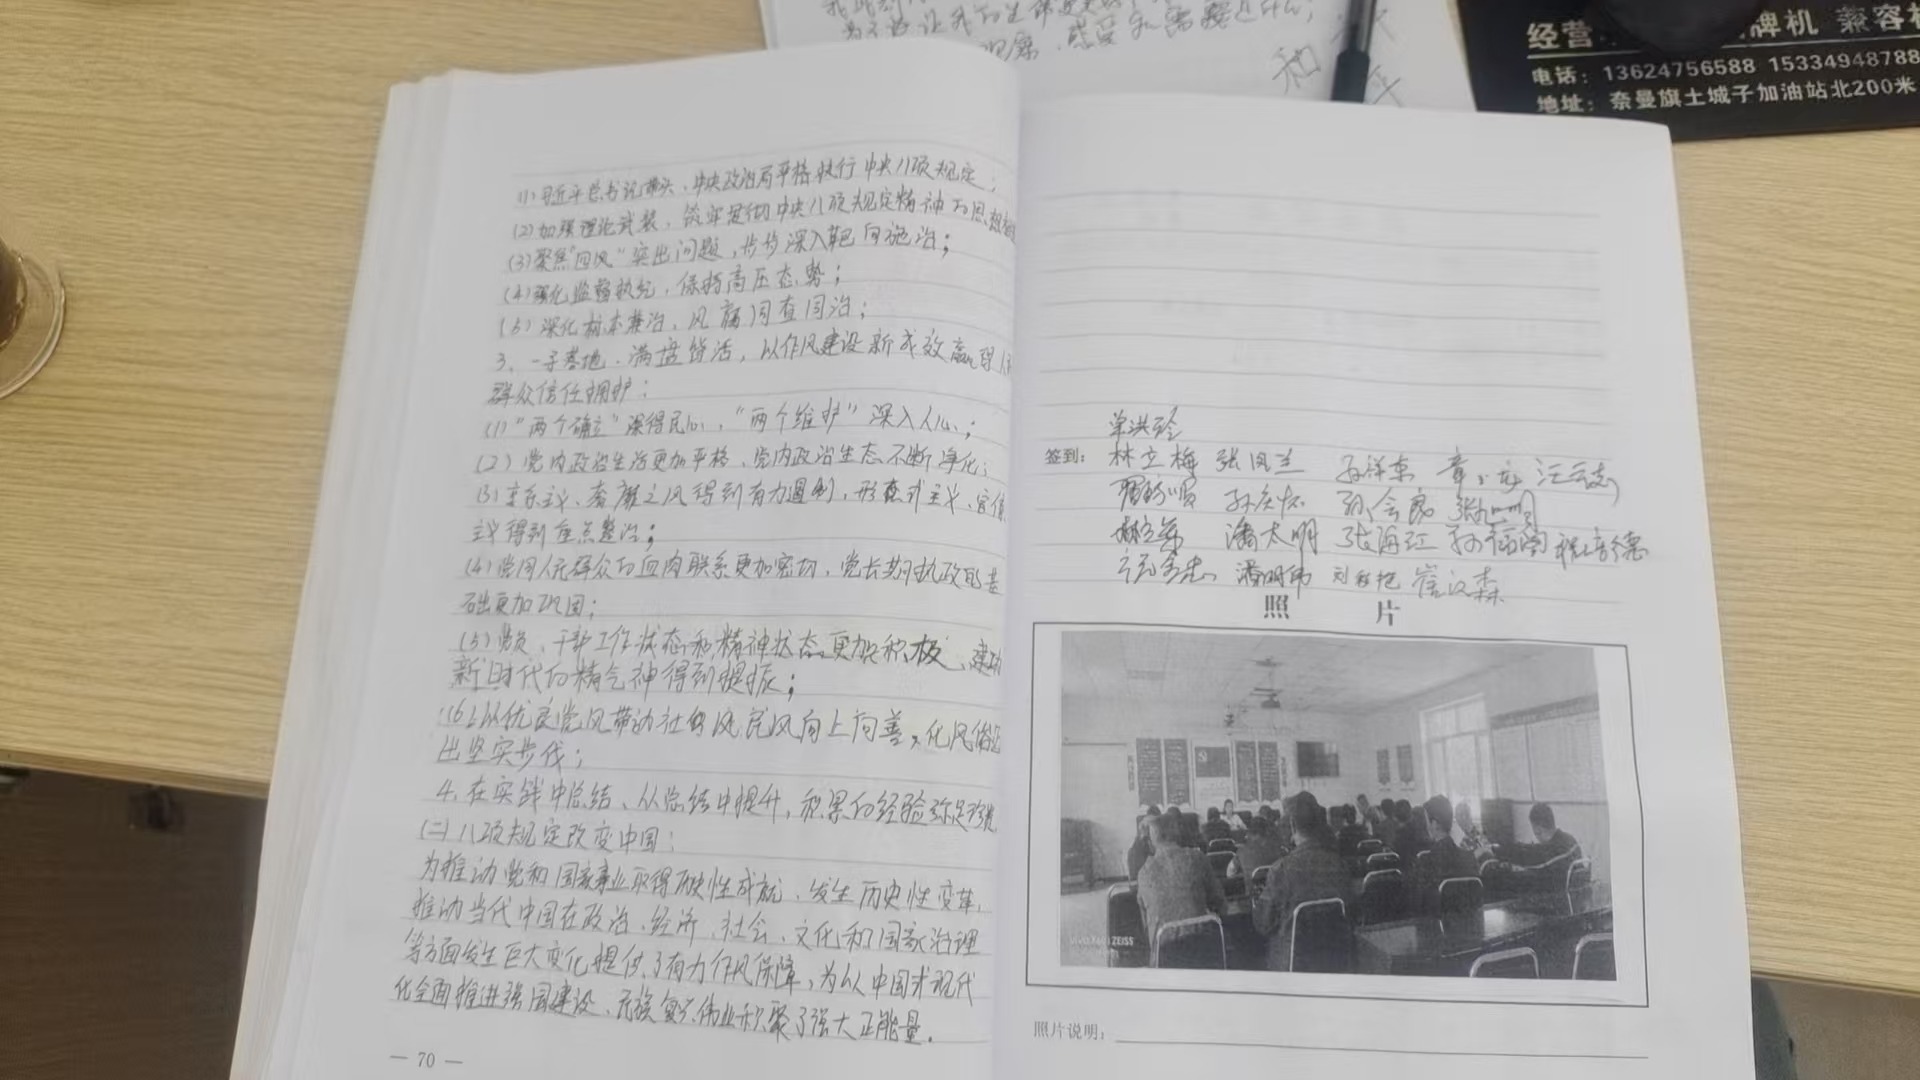 为了
让我的生命更
观察、感受和需要是什么;
和 平
经营 牌机 兼容机
电话: 13624756588 15334948788
地址: 奈曼旗土城子加油站北200米
(1) 习近平总书记带头、中央政治局严格执行中央八项规定;
(2) 加强理论武装、筑牢贯彻中央八项规定精神的思想
(3) 聚焦"四风"突出问题,步步深入靶向施治;
(4) 强化监督执纪,保持高压态势;
(5) 深化标本兼治、风腐同查同治;
3、一子落地、满盘皆活,以作风建设新成效赢得人
群众信任拥护:
(1) "两个确立"深得民心,"两个维护"深入人心;
(2) 党内政治生活更加严格、党内政治生态不断净化;
(3) 享乐主义、奢靡之风得到有力遏制,形式主义、官僚
主义得到重点整治;
(4) 党同人民群众的血肉联系更加密切,党长期执政的基
础更加巩固;
(5) 党员、干部工作状态和精神状态更加积极、建功
新时代的精气神得到提振;
(6) 以优良党风带动社风民风向上向善,化风俗
出坚实步伐;
4、在实践中总结、从总结中提升,积累的经验弥足珍贵
(二) 八项规定改变中国:
为推动党和国家事业取得历史性成就、发生历史性变革,
推动当代中国在政治、经济、社会、文化和国家治理
等方面发生巨大变化提供了有力作风保障,为以中国式现代
化全面推进强国建设、民族复兴伟业积聚了强大正能量。
— 70 —
单洪玲
签到: 林立梅 张凤兰 孙祥东 章小龙 汪云志
孙庆怀 孙会良
潘太明 张海江 孙福阁 程培德
潘明伟 崔汉森
照 片
ZEISS
照片说明: